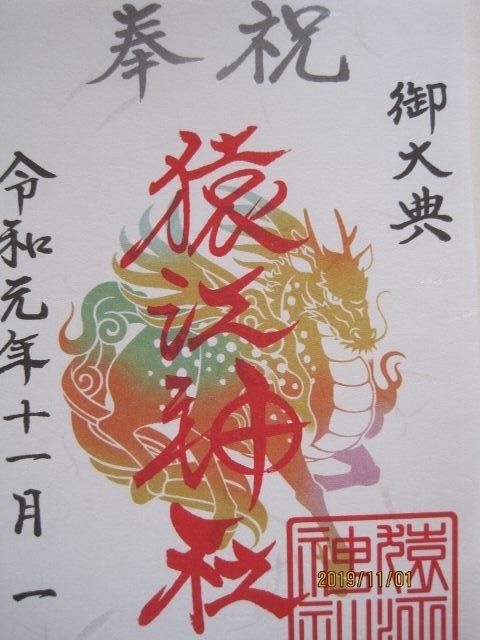 奉祝
御大典
猿江神社
令和元年十一月一
猿江
神社
2019/11/01